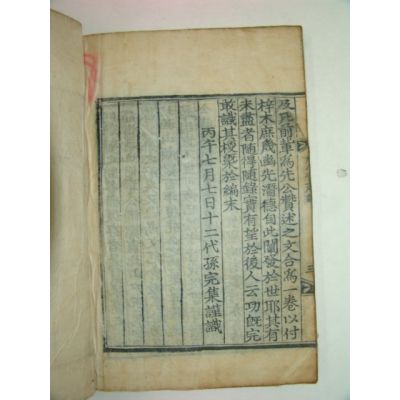 及凡前輩爲先公贊述之文合爲一卷以付
梓木庶幾幽先潛德自此闡發於世耶其有
未盡者隨得隨錄實有望於後人云功旣完
敢識其梗槩於編末
丙午七月七日十二代孫完集謹識